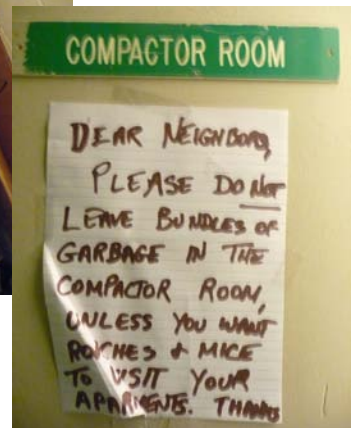 COMPACTOR ROOM
DEAR NEIGHBORS,
PLEASE DO NOT
LEAVE BUNDLES OF
GARBAGE IN THE
COMPACTOR ROOM,
UNLESS YOU WANT
ROACHES & MICE
TO VISIT YOUR
APARMENTS. THANKS